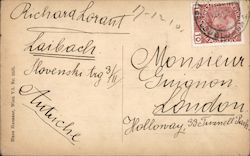 Richard Lorant
17-12-10
Laibach
Slovenski trg 3/II
Autriche
Monsieur
Guignon
London
Holloway, 33